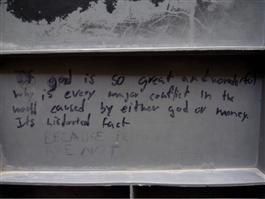 If god is so great and wonderful
why is every major conflict in the
world caused by either god or money.
Its historical fact
BECAUSE
NOT